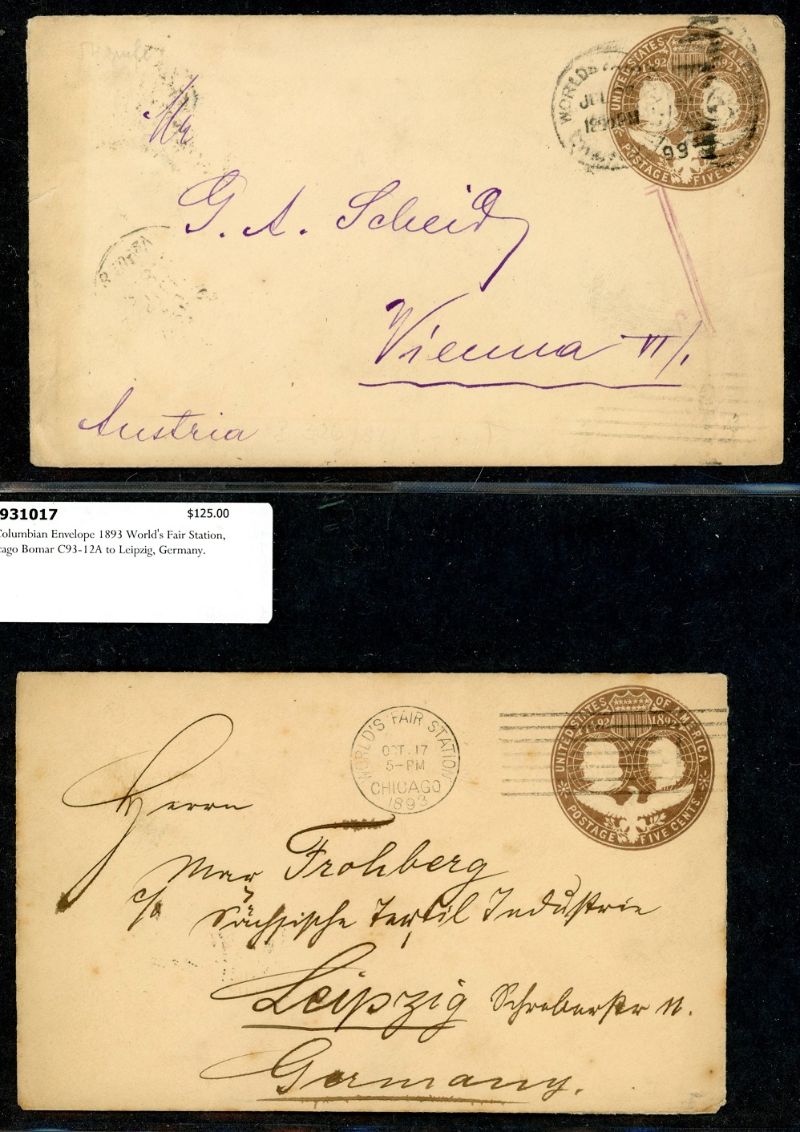 UNITED STATES OF AMERICA
92 1892
POSTAGE FIVE CENTS
WORLD'S
12 30 PM
93
Mr
G. A. Scheid
Vienna VI/1.
Austria
931017 $125.00
Columbian Envelope 1893 World's Fair Station,
cago Bomar C93-12A to Leipzig, Germany.
UNITED STATES OF AMERICA
1492 1892
POSTAGE FIVE CENTS
WORLD'S FAIR STATION
OCT. 17
5-PM
CHICAGO
1893
Herrn
Max Frohberg
c/o Sächsische Textil Industrie
Leipzig Schreberstr 11.
Germany.